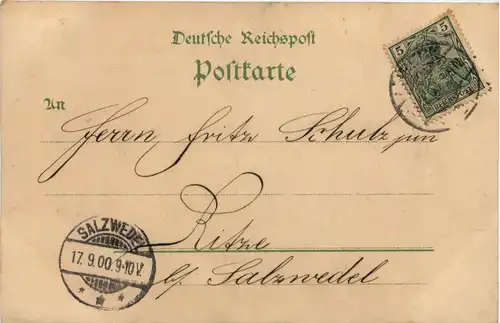 Deutsche Reichspost
Postkarte
5 5
An
Herrn Fritz Schulz jun
Ritze
b/ Salzwedel
SALZWEDEL
17. 9.00.9-10 V.